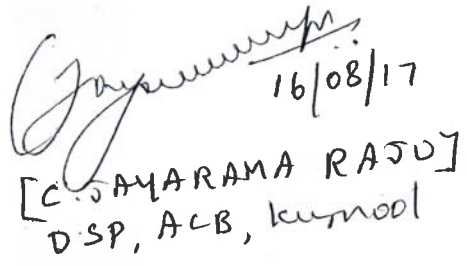 16/08/17
[C. JAYARAMA RAJU]
DSP, ACB, Kurnool